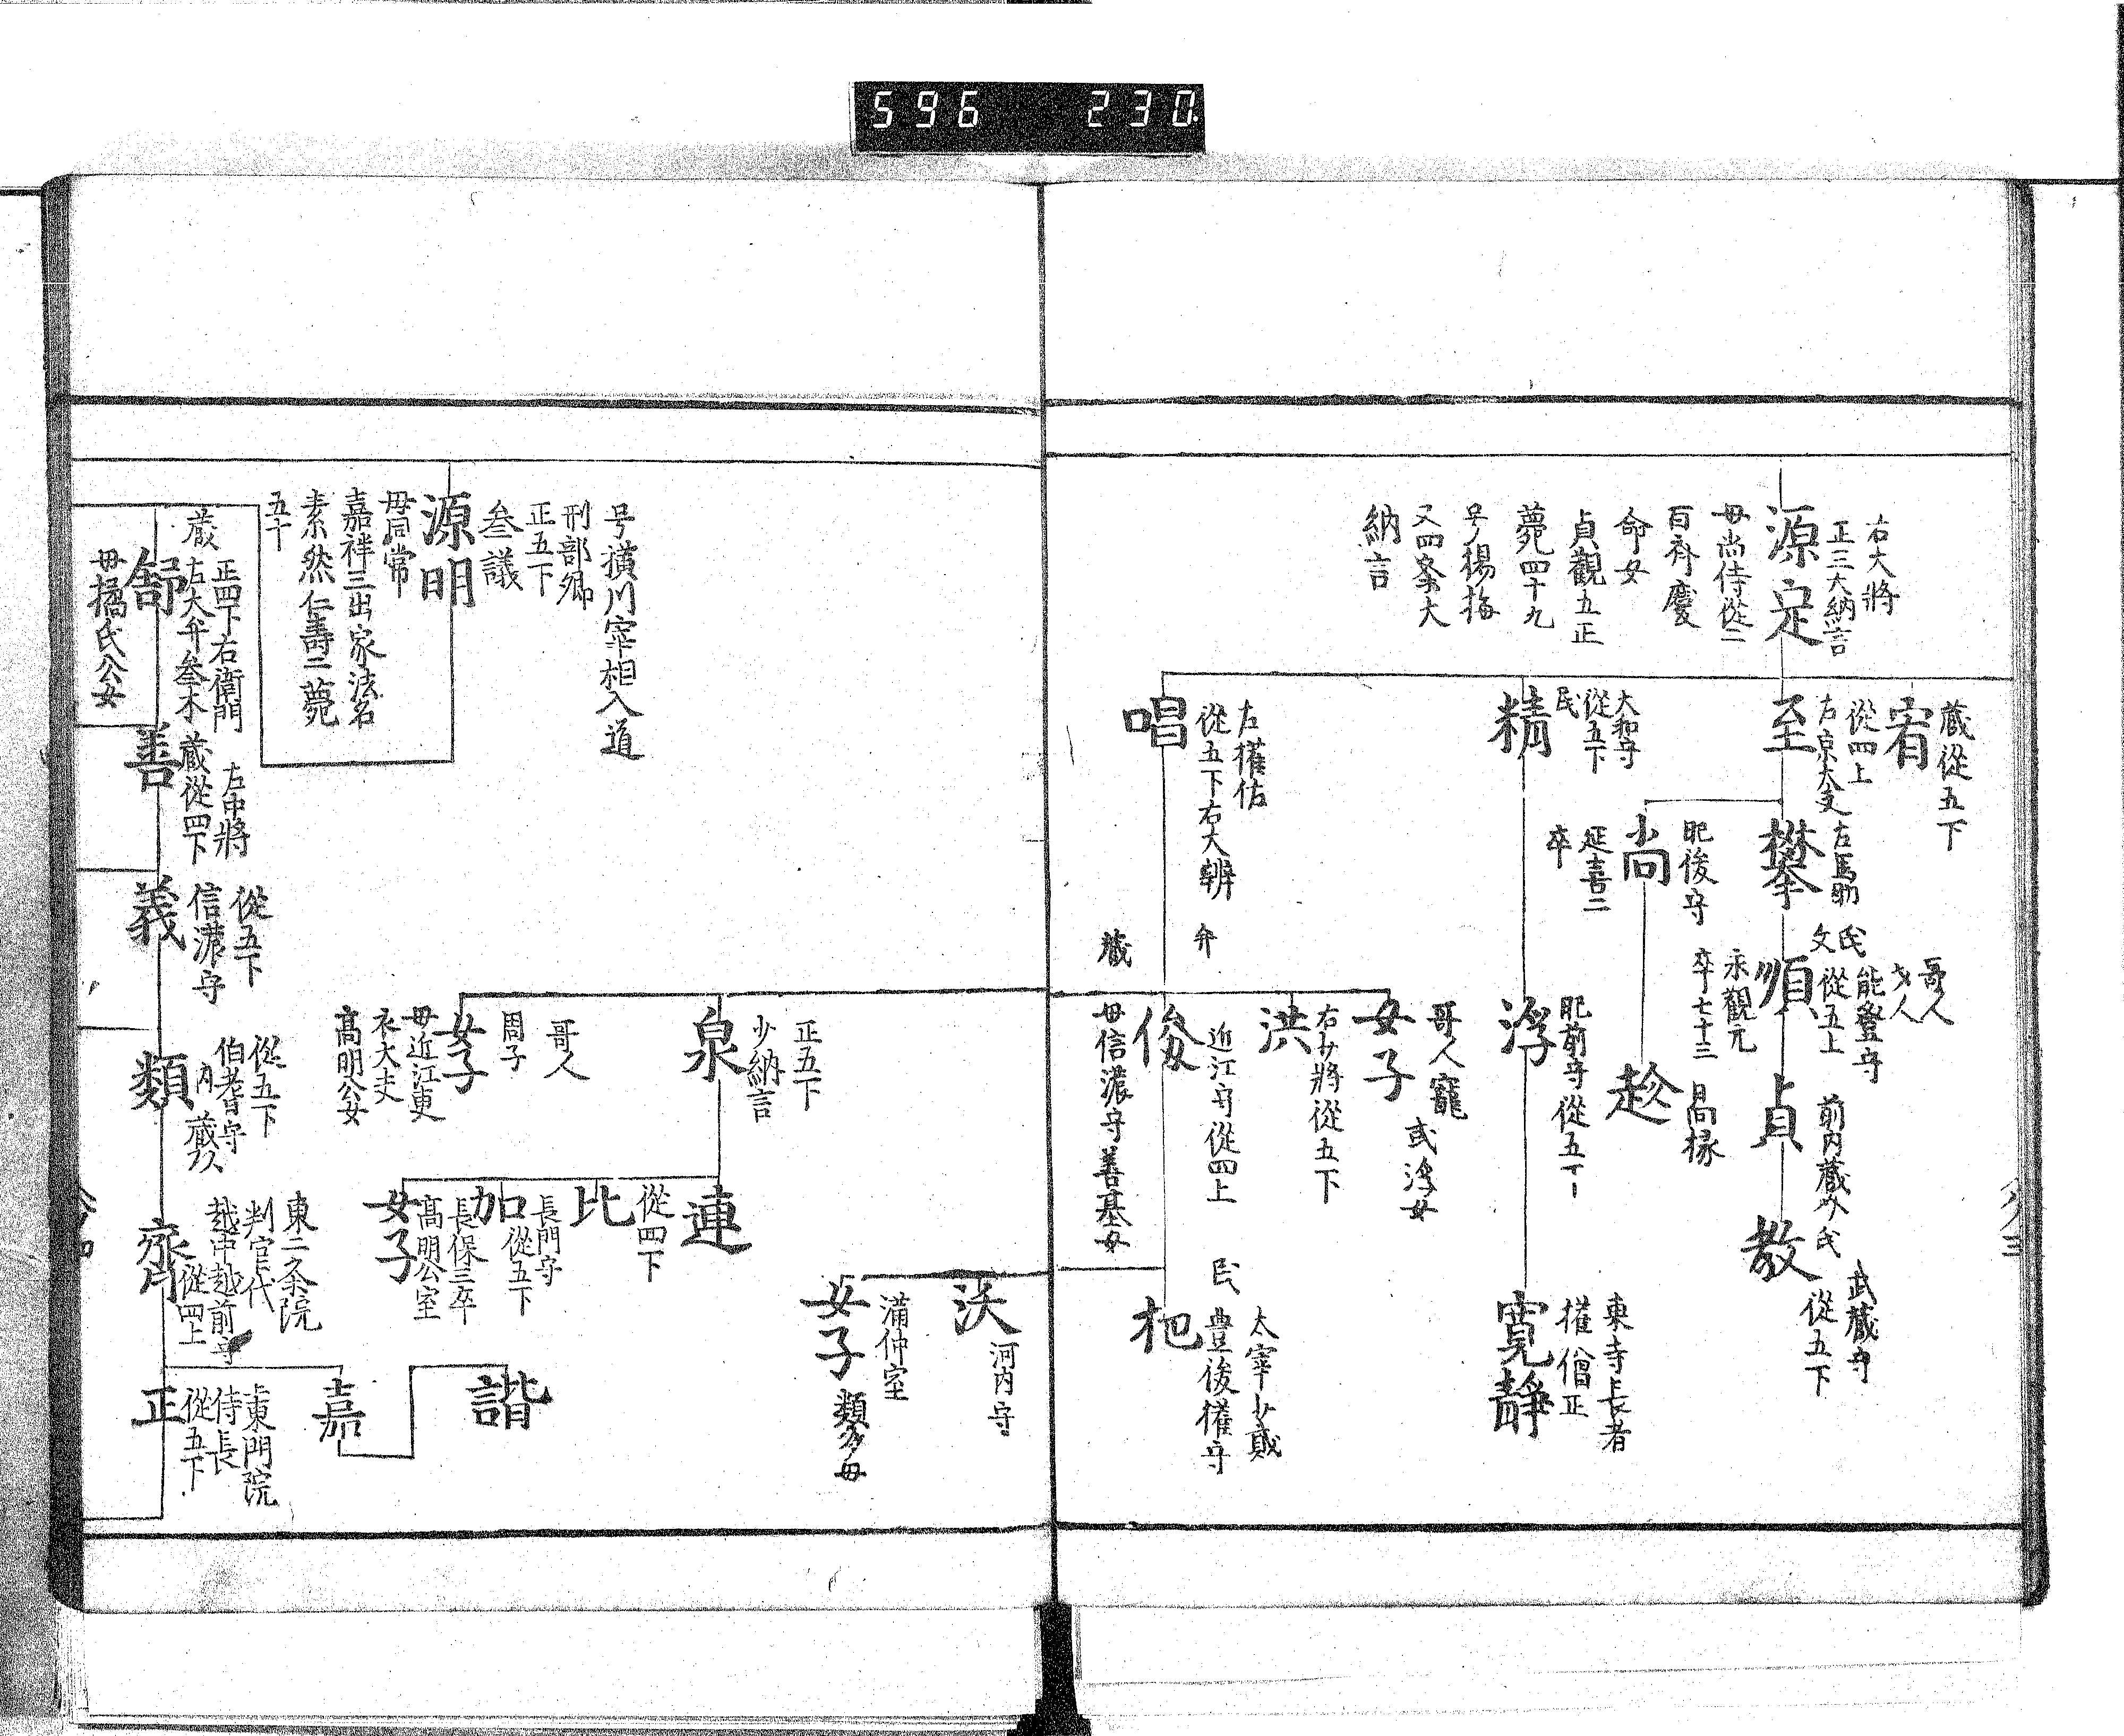 596 230
右大將
正三大納言
源定
母尚侍從二
百済慶
命女
貞觀五正
薨四十九
号楊梅
又四条大
納言
蔵從五下
宥
從四上
右京大夫
至
大和守
從五下
民
精
左權佐
從五下右大辨
唱
左馬助
攀
肥後守
尚
延喜二
卒
哥人
文人
能登守
從五上
民
文
順
永觀元
卒七十三
日向掾
趁
肥前守從五下
浮
哥人寵
或浮女
女子
右少將從五下
洪
弁
近江守從四上
俊
蔵
母信濃守善基女
前内蔵外民
貞
武蔵守
從五下
教
東寺長者
權僧正
寛靜
民
太宰少貳
豊後權守
杷
河内守
泆
滿仲室
女子
類多母
正五下
少納言
泉
哥人
周子
女子
母近江更
衣大夫
高明公女
連
從四下
比
長門守
從五下
加
長保三卒
高明公室
女子
号横川宰相入道
刑部卿
正五下
叄議
源明
母同常
嘉祥三出家法名
素然仁壽二薨
五十
正四下右衛門
左大弁叄木
蔵
舒
母橘氏公女
左中將
蔵從四下
善
從五下
信濃守
義
從五下
伯耆守
内蔵人
類
東二条院
判官代
越中越前守
從四上
齊
諧
嘉
上東門院
侍長
從五下
正